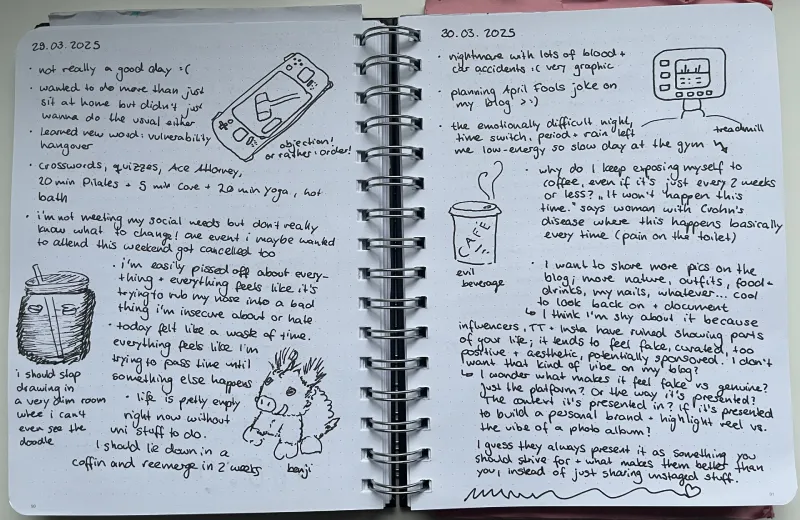 29.03.2025
· not really a good day :(
· wanted to do more than just
sit at home but didn't just
wanna do the usual either
· learned new word: vulnerability
hangover
objection!
or rather: order!
· crosswords, quizzes, Ace Attorney,
20 min Pilates + 5 min core + 20 min Yoga, hot
bath
· i'm not meeting my social needs but don't really
know what to change! one event i maybe wanted
to attend this weekend got cancelled too
· i'm easily pissed off about every-
thing + everything feels like it's
trying to rub my nose into a bad
thing i'm insecure about or hate
· today felt like a waste of time.
everything feels like I'm
trying to pass time until
something else happens
· life is pretty empty
right now without
uni stuff to do.
I should lie down in a
coffin and reemerge in 2 weeks
i should stop
drawing in
a very dim room
where i can't
even see the
doodle
benji
30.03.2025
· nightmare with lots of blood +
car accidents :( very graphic
· planning April Fools joke on
my blog >:)
· the emotionally difficult night,
time switch, period + rain left
me low-energy so slow day at the gym
treadmill
CAFE
evil
beverage
· why do I keep exposing myself to
coffee, even if it's just every 2 weeks
or less? "It won't happen this
time." says woman with Crohn's
disease where this happens basically
every time (pain on the toilet)
· I want to share more pics on the
blog; more nature, outfits, food +
drinks, my nails, whatever... cool
to look back on + document
↳ I think I'm shy about it because
influencers, TT + Insta have ruined showing parts
of your life; it tends to feel fake, curated, too
positive + aesthetic, potentially sponsored. I don't
want that kind of vibe on my blog?
↳ I wonder what makes it feel fake vs genuine?
Just the platform? Or the way it's presented?
The context it's presented in? If it's presented
to build a personal brand + highlight reel vs.
the vibe of a photo album?
I guess they always present it as something you
should strive for + what makes them better than
you, instead of just sharing unstaged stuff.